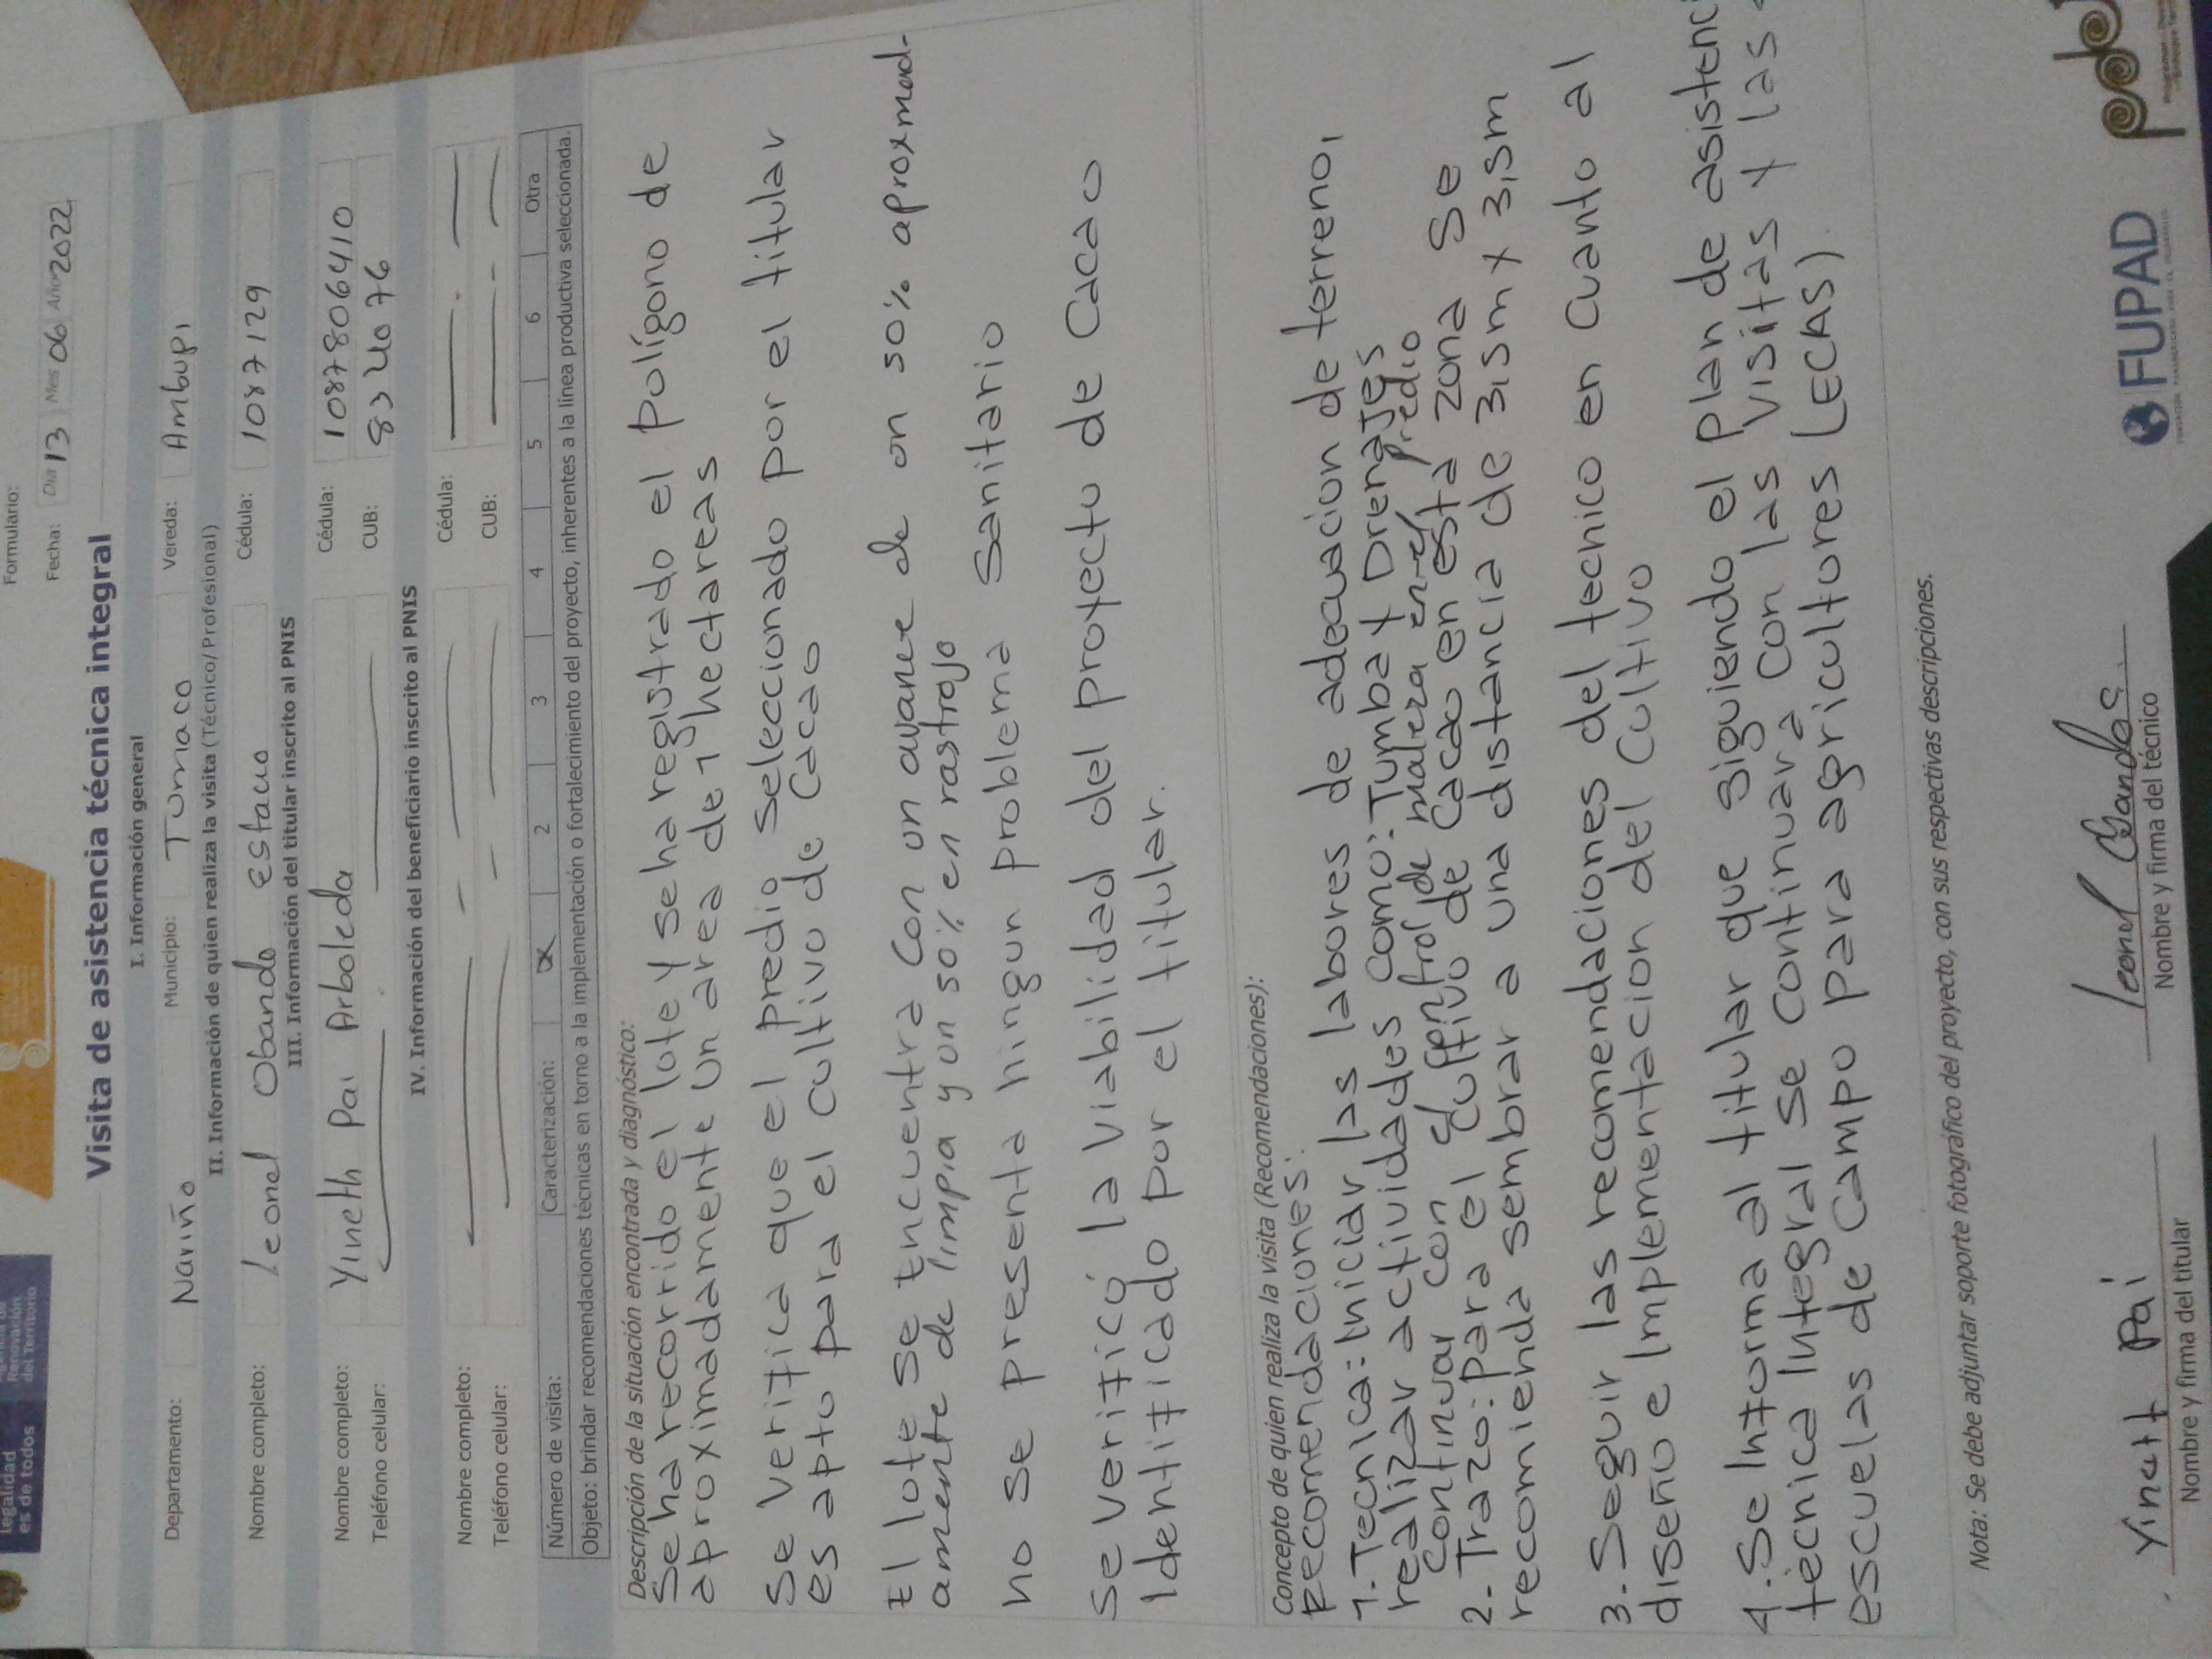 legalidad
es de todos
Renovación
del Territorio
Formulario:
Fecha: Día 13 Mes 06 Año 2022
Visita de asistencia técnica integral
I. Información general
Departamento: Nariño Municipio: Tumaco Vereda: Ambupi
II. Información de quien realiza la visita (Técnico/Profesional)
Nombre completo: Leonel Obando Estacio Cédula: 1087129
III. Información del titular inscrito al PNIS
Nombre completo: Yineth Pai Arboleda Cédula: 1087806410
Teléfono celular: CUB:
IV. Información del beneficiario inscrito al PNIS
Nombre completo: Cédula:
Teléfono celular: CUB:
Número de visita: Caracterización: X 2 3 4 5 6 Otra
Objeto: brindar recomendaciones técnicas en torno a la implementación o fortalecimiento del proyecto, inherentes a la línea productiva seleccionada.
Descripción de la situación encontrada y diagnóstico:
Se ha recorrido el lote y se ha registrado el polígono de
aproximadamente un area de 1 hectareas
Se verifica que el predio seleccionado por el titular
es apto para el cultivo de cacao
El lote se encuentra con un avance de un 50% aproximad-
amente de limpia y un 50% en rastrojo
no se presenta ningun problema sanitario
se verificó la viabilidad del proyecto de cacao
Identificado por el titular.
Concepto de quien realiza la visita (Recomendaciones):
Recomendaciones:
1.- Tecnica: Iniciar las labores de adecuacion de terreno,
realizar actividades como: Tumba y Drenajes
continuar con el control de maleza en el predio
2.- Trazo: para el cultivo de cacao en esta zona se
recomienda sembrar a una distancia de 3,5m x 3,5m
3.- Seguir las recomendaciones del tecnico en cuanto al
diseño e Implementacion del cultivo
4.- Se Informa al titular que siguiendo el plan de asistenc
técnica Integral se continuara con las visitas y las
escuelas de Campo para agricultores (ECAS).
Nota: Se debe adjuntar soporte fotográfico del proyecto, con sus respectivas descripciones.
Yineth Pai
Nombre y firma del titular
Leonel Obando E.
Nombre y firma del técnico
FUPAD